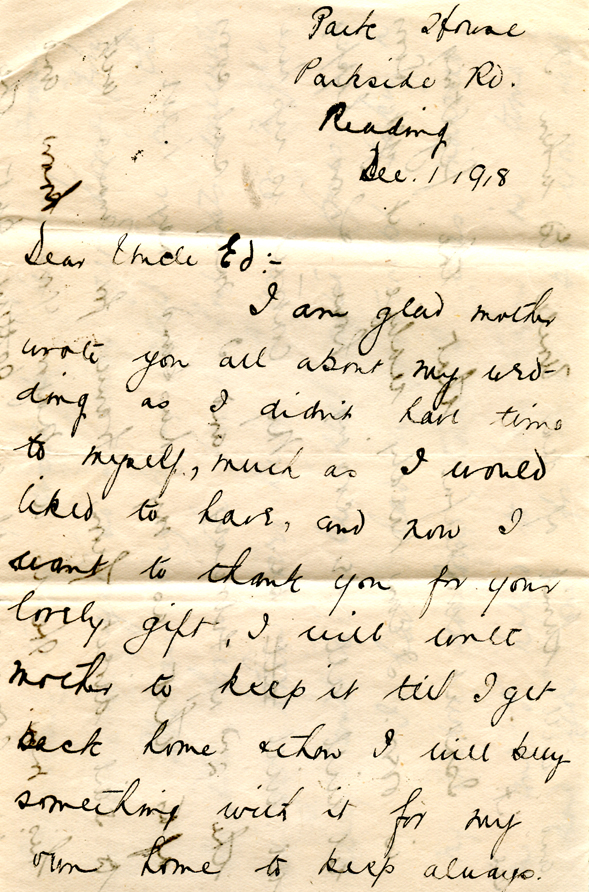 Park House
Parkside Rd.
Reading
Dec. 1 1918
Dear Uncle Ed:-
I am glad mother
wrote you all about my wed-
ding as I didn't have time
to myself, much as I would
liked to have, and now I
want to thank you for your
lovely gift, I will write
mother to keep it till I get
back home & then I will buy
something with it for my
own home to keep always.